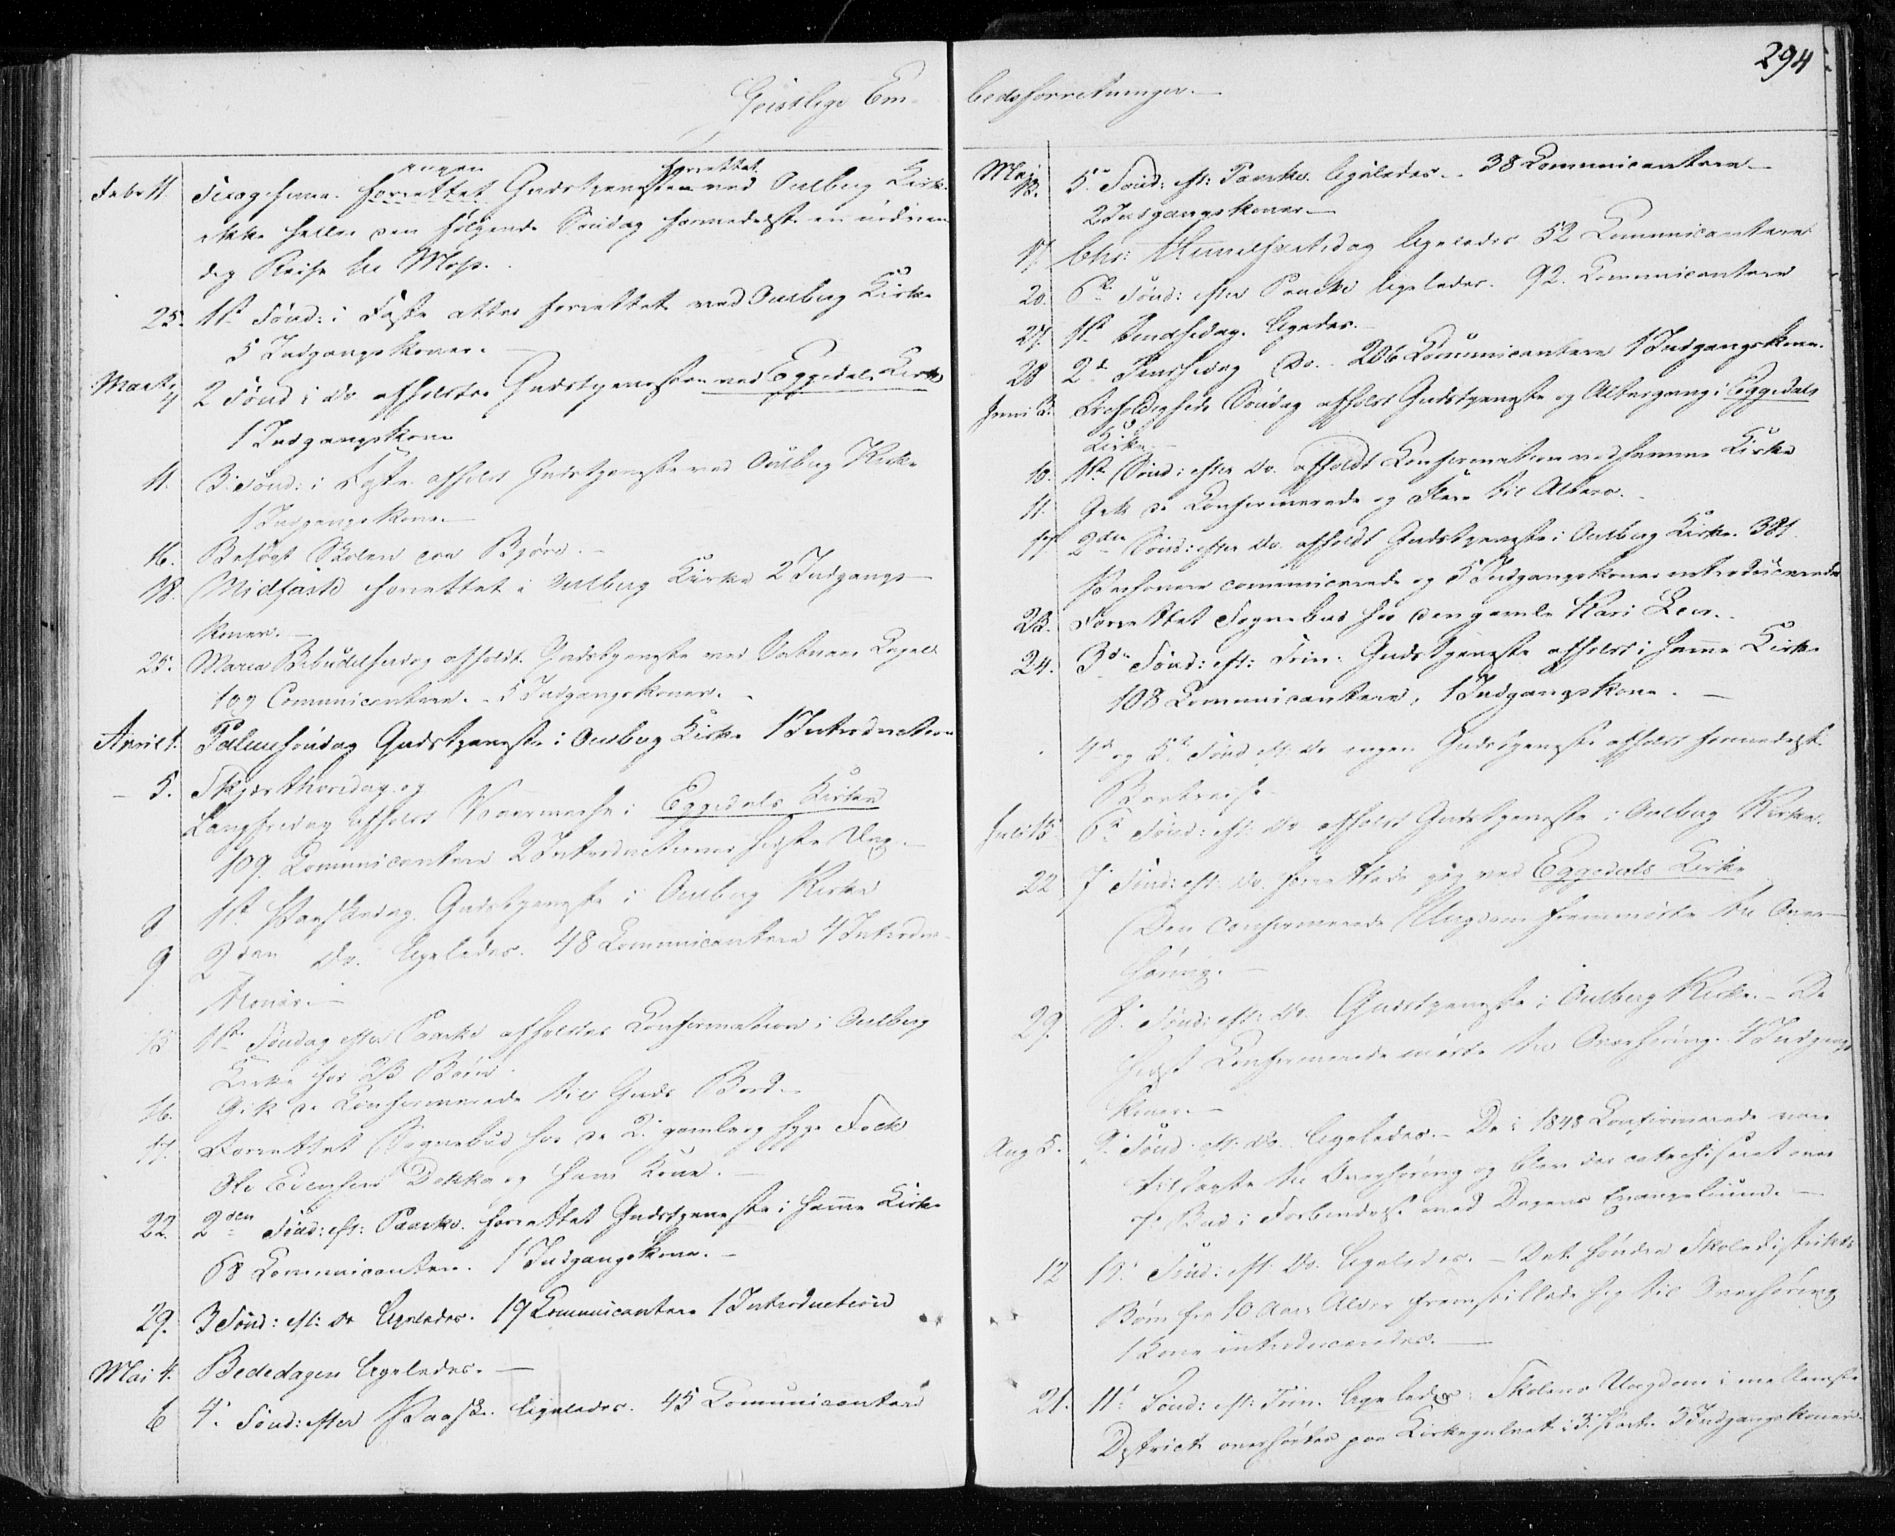 294
Geistlige Em-
bedsforretninger.
Febr 11 Fugesima. forrettet ingen Gudstjenesten forrettet ved Oulberg Kirke
ikke heller den følgende Søndag formedelst en nødven
dig Reise til Moss.
25. 1ste Sønd: i Faste atter forrettet ved Oulberg Kirke
5 Indgangskoner.
Marts 4 2 Sønd i do afholdtes Gudstjenesten ved Eggedals Kirke
1 Indgangskone
11. 3. Sønd: i Faste afholdt Gudstjeneste ved Oulberg Kirke
1 Indgangskone.
16. Besøgt Skolen paa Bjøre.
18. Midfaste forrettet i Oulberg Kirke 2 Indgangs-
koner.
25. Maria Bebudelsesdag afholdt Gudstjeneste ved Vatnaas Capel
109 Communicantere. 5 Indgangskoner.
April 1. Palmesøndag Gudstjeneste i Oulberg Kirke 1 Introduction
5. Skjærthorsdag og
Langfredag afholdt i Eggedals Kirke
109 Communicantere 2 Introductioner første Dag.
8 1ste Paaskedag Gudstjeneste i Oulberg Kirke
9 2den do. ligeledes. 48 Communicantere 4 Introduc-
tioner.
15 1ste Søndag efter Paaske afholdtes Confirmation i Oulberg
Kirke for 23 Børn.
16. Gik de Confirmerede til Guds Bord.
17. Forrettet Sognebud for de 2 gamle og syge Folk
Ole Edensen Dokka og hans Kone.
22. 2den Sønd: eft: Paaske. forrettet Gudstjeneste i samme Kirke
68 Communicantere. 1 Indgangskone.
29. 3 Sønd: eft: do ligeledes. 17 Communicantere 1 Introduction
Mai 4. Bededagen ligeledes.
6 4. Sønd: efter Paaske ligeledes. 45 Communicantere
Mai 13. 5te Sønd: eft: Paaske. ligeledes. 38 Communicantere
2 Indgangskoner
17. Chr: Himmelfartsdag ligeledes 52 Communicantere
20. 6te Sønd: efter Paaske ligeledes. 92. Communicantere
27. 1ste Pindsedag. ligedes.
28 2den Pindsedag Do. 206 Communicantere 1 Indgangskone.
Juni 3. Trefoldigheds Søndag afholdt Gudstjeneste og Altergang i Eggedals
Kirke.
10. 1ste Sønd: efter do. afholdt Confirmation ved samme Kirke
11. Gik de Confirmerede og Flere til Alters.
17 2den Sønd: efter do. afholdt Gudstjeneste i Oulberg Kirke. 381
Personer communicerede og 5 Indgangskoner introduceredes
23. Forrettet Sognebud hos den gamle Kari
24. 3die Sønd: eft: Trin: Gudstjeneste afholdt i samme Kirke
108 Communicantere, 1 Indgangskone.
4de og 5te Sønd eft: do ingen Gudstjeneste afholdt formedelst
Juli 15 6te Sønd: eft: do afholdt Gudstjeneste i Oulberg Kirke.
22 7. Sønd: eft: do. forrettede jeg ved Eggedals Kirke
Den Confirmerede Ungdom fremmødte til Over-
høring.
29. 8. Sønd: eft: do. Gudstjeneste i Oulberg Kirke. De
sidst Confirmerede mødte til Overhøring. 4 Indgangs
koner.
Aug 5. 9. Sønd: eft: do. ligeledes. De i 1848 Confirmerede vare
tilsagte til Overhøring og blev der catechiseret over
7de Bud i Forbindelse med Dagens Evangelium.
12 10. Sønd: eft. do. ligeledes. Det søndre Skoledistrikts
Børn fra 10 Aars Alder fremstillede sig til Overhøring
1 Kone introduceredes.
21. 11. Sønd: eft: Trin. ligeledes. Skolens Ungdom i mellemste
District overhørtes paa Kirkegulvet i 3. Part. 3 Indgangskoner.